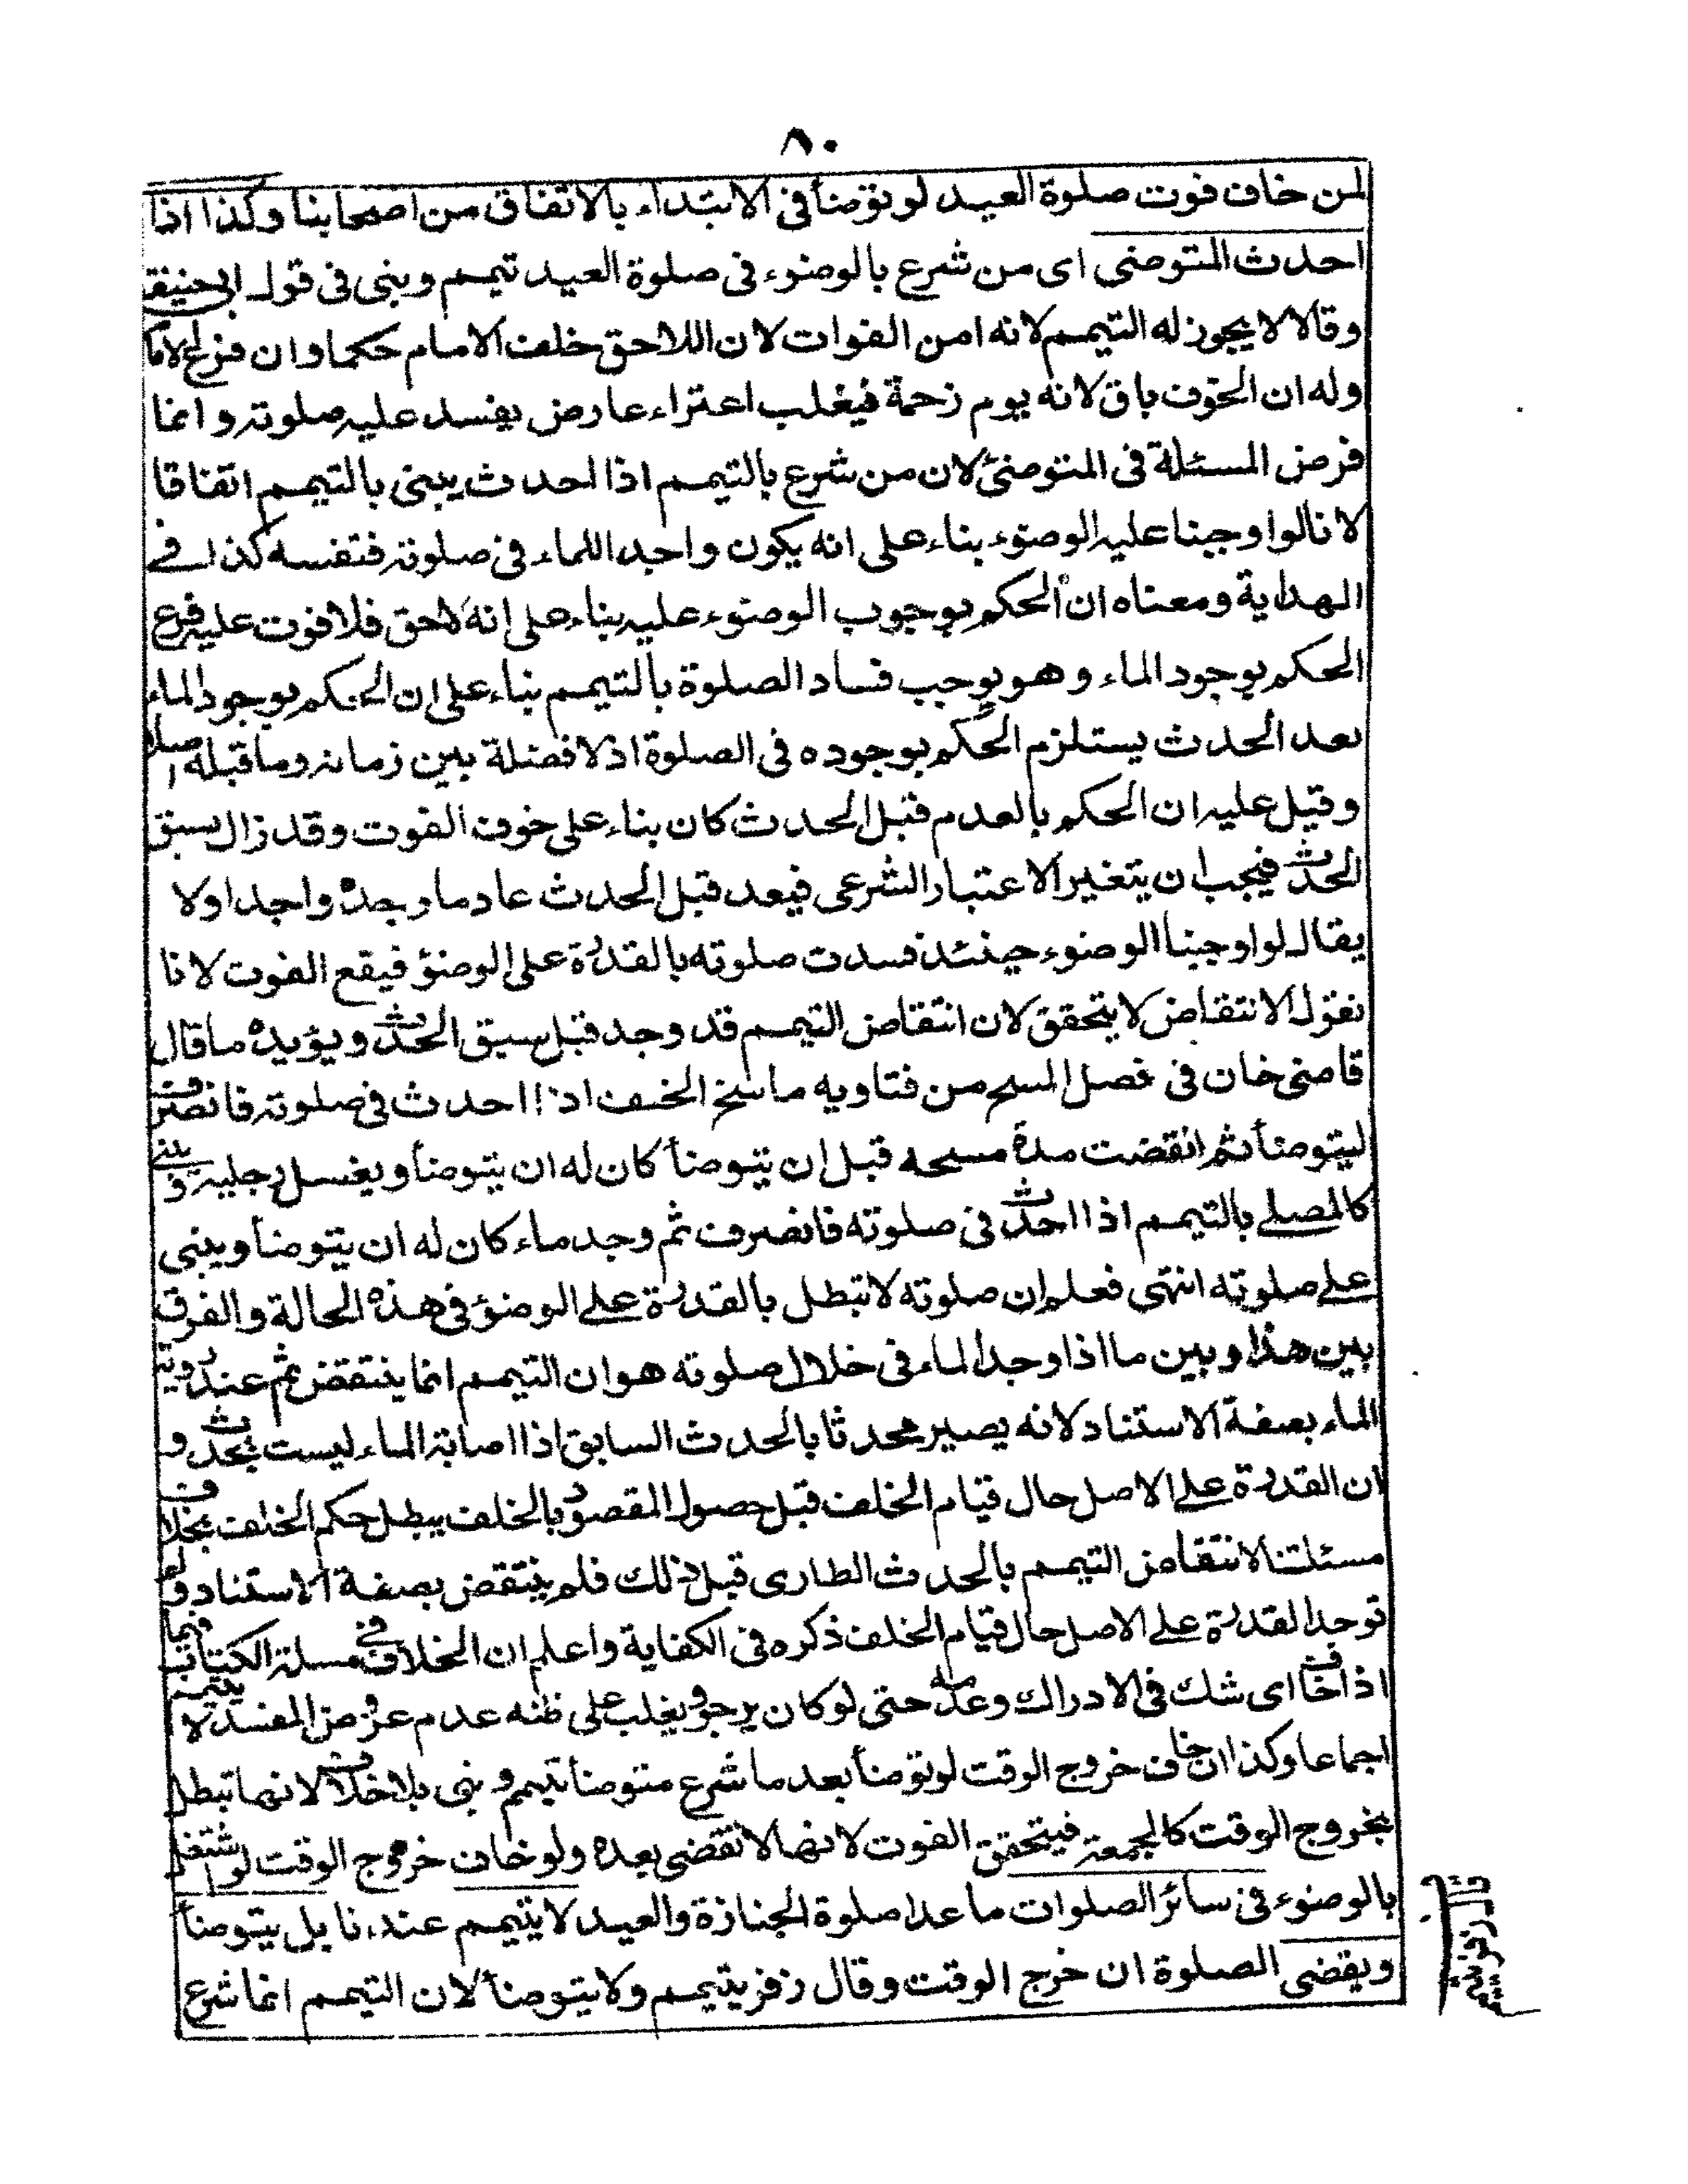 ٨٠
لمن خاف فوت صلوة العيد لو توضأ فى الابتداء بالاتفاق من اصحابنا وكذا اذا
احدث المتوضى اى من شرع بالوضوء فى صلوة العيد تيمم وبنى فى قول ابى حنيفة
وقالا لا يجوز له التيمم لانه امن الفوات لان اللاحق خلف الامام حكما وان فرغ الامام
وله ان الخوف باق لانه يوم زحمة فيغلب اعتراء عارض يفسد عليه صلوته وانما
فرض المسئلة فى المتوضئ لان من شرع بالتيمم اذا احدث يبنى بالتيمم اتفاقا
لانا لو اوجبنا عليه الوضوء بناء على انه يكون واجد اللماء فى صلوته فتفسد كذا فى
الهداية ومعناه ان الحكم بوجوب الوضوء عليه بناء على انه لاحق فلا فوت عليه فرع
الحكم بوجود الماء وهو يوجب فساد الصلوة بالتيمم بناء على ان الحكم بوجود الماء
بعد الحدث يستلزم الحكم بوجوده فى الصلوة اذ لا فصلة بين زمانه وما قبله اصلا
وقيل عليه ان الحكم بالعدم قبل الحدث كان بناء على خوف الفوت وقد زال بسبق
الحدث فيجب ان يتغير الاعتبار الشرعى فيعد قبل الحدث عادما وبعده واجدا ولا
يقال لو اوجبنا الوضوء حينئذ فسدت صلوته بالقدرة على الوضؤ فيقع الفوت لانا
نقول الانتقاض لا يتحقق لان انتقاض التيمم قد وجد قبل سبق الحدث ويؤيده ما قال
قاضى خان فى فصل المسح من فتاويه ماسح الخف اذا احدث فى صلوته فانصرف
ليتوضأ ثم انقضت مدة مسحه قبل ان يتوضأ كان له ان يتوضأ ويغسل رجليه ويبنى
كالمصلے بالتيمم اذا احدث فى صلوته فانصرف ثم وجد ماء كان له ان يتوضأ ويبنى
علے صلوته انتهى فعلم ان صلوته لا تبطل بالقدرة علے الوضؤ فى هذه الحالة والفرق
بين هذا وبين ما اذا وجد الماء فى خلال صلوته هو ان التيمم انما ينتقض ثم عند روية
الماء بصفة الاستناد لانه يصير محدثا بالحدث السابق اذا اصابة الماء ليست بحدث و
ان القدرة علے الاصل حال قيام الخلف قبل حصول المقصود بالخلف يبطل حكم الخلف بخلاف
مسئلتنا لانتقاض التيمم بالحدث الطارى قبل ذلك فلم ينتقض بصفة الاستناد ولم
توجد القدرة علے الاصل حال قيام الخلف ذكره فى الكفاية واعلم ان الخلاف فى مسلة الكتاب فيما
اذا خاف اى شك فى الادراك وعدمه حتى لو كان يرجو ويغلب على ظنه عدم عروض المفسد لا يتيمم
اجماعا وكذا ان خاف خروج الوقت لو توضأ بعد ما شرع متوضأ تيمم وبنى بلا خلاف لانها تبطل
بخروج الوقت كالجمعة فيتحقق الفوت لانها لا تقضى بعده ولو خاف خروج الوقت لو اشتغل
بالوضوء فى سائر الصلوات ما عدا صلوة الجنازة والعيد لا يتيمم عندنا بل يتوضأ
ويقضى الصلوة ان خرج الوقت وقال زفر يتيمم ولا يتوضأ لان التيمم انما شرع